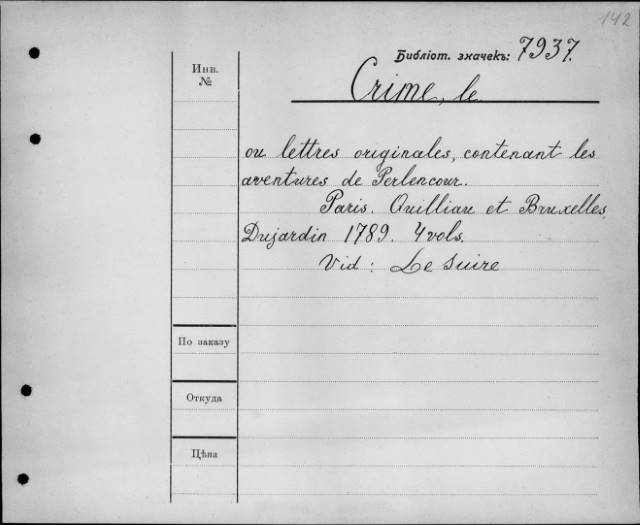 142
Библіот. значекъ: 7937.
Инв.
№
Crime, le
ou lettres originales, contenant les
aventures de Perlencour.
Paris. Quilliau et Bruxelles,
Dujardin 1789. 4 vols.
Vid: Le Suire
По заказу
Откуда
Цѣна